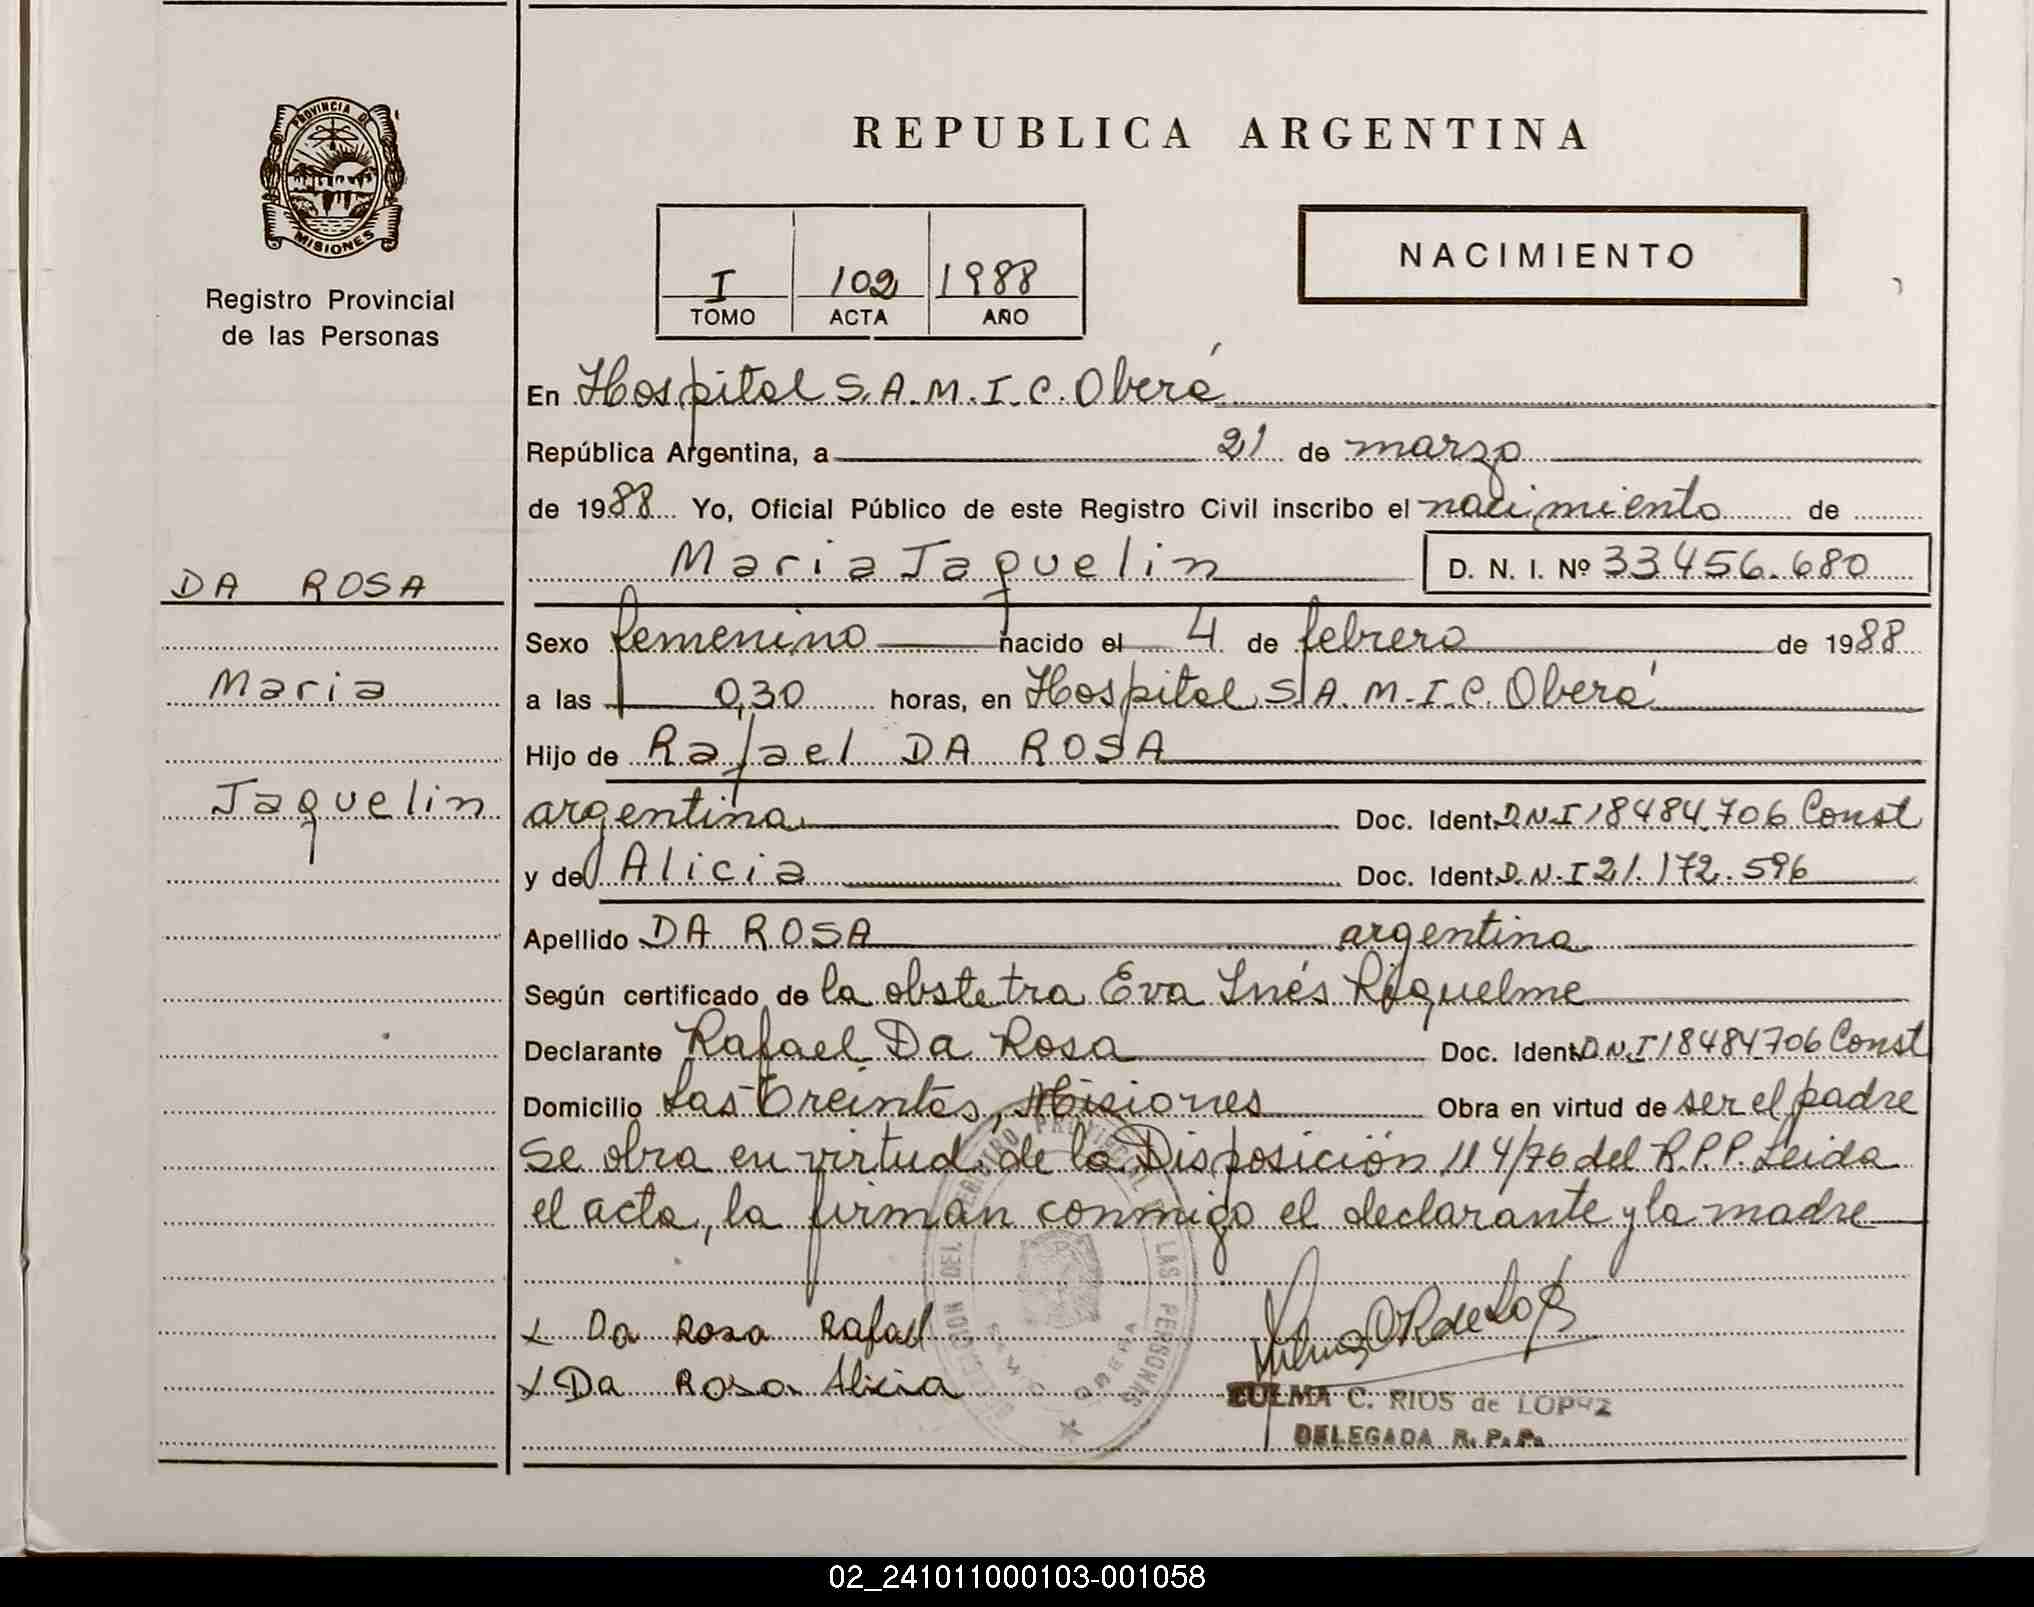 REPUBLICA ARGENTINA
PROVINCIA DE
MISIONES
Registro Provincial
de las Personas
I 102 1988
TOMO ACTA AÑO
NACIMIENTO
En Hospital S.A.M.I.C. Oberá
República Argentina, a 21 de marzo
de 1988 Yo, Oficial Público de este Registro Civil inscribo el nacimiento de
Maria Jaquelin D. N. I. Nº 33.456.680
DA ROSA
Maria
Jaquelin
Sexo femenino nacido el 4 de febrero de 1988
a las 0,30 horas, en Hospital S.A.M.I.C. Oberá
Hijo de Rafael DA ROSA
argentina Doc. Ident. D.N.I 18484.706 Const
y de Alicia Doc. Ident. D.N.I 21.172.596
Apellido DA ROSA argentina
Según certificado de la obstetra Eva Inés Riquelme
Declarante Rafael Da Rosa Doc. Ident. D.N.I 18484706 Const
Domicilio Las Treintas, Misiones Obra en virtud de ser el padre
Se obra en virtud de la Disposición 114/76 del R.P.P. Leida
el acta, la firman conmigo el declarante y la madre
x Da Rosa Rafael
x Da Rosa Alicia
ZULMA C. RIOS de LOPEZ
DELEGADA R. P. P.
02_241011000103-001058